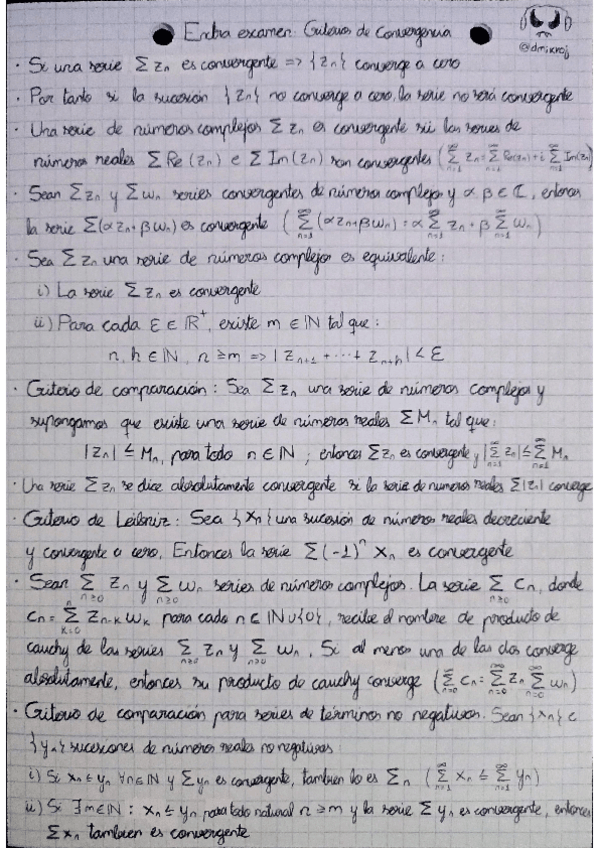 Extra examen: Criterios de Convergencia
@dmikroj
· Si una serie Σ zn es convergente => {zn} converge a cero
· Por tanto si la sucesión {zn} no converge a cero, la serie no será convergente
· Una serie de números complejos Σ zn es convergente sii las series de
números reales Σ Re(zn) e Σ Im(zn) son convergentes (∞Σn=1 zn = ∞Σn=1 Re(zn) + i ∞Σn=1 Im(zn))
· Sean Σ zn y Σ wn series convergentes de números complejos y α, β ∈ ℂ, entonces
la serie Σ(αzn + βwn) es convergente (∞Σn=1 (αzn + βwn) = α ∞Σn=1 zn + β ∞Σn=1 wn)
· Sea Σ zn una serie de números complejos es equivalente:
i) La serie Σ zn es convergente
ii) Para cada ε ∈ ℝ+, existe m ∈ ℕ tal que:
n, h ∈ ℕ, n ≥ m => |zn+1 + ··· + zn+h| < ε
· Criterio de comparación: Sea Σ zn una serie de números complejos y
supongamos que existe una serie de números reales Σ Mn tal que:
|zn| ≤ Mn, para todo n ∈ ℕ, entonces Σ zn es convergente y |∞Σn=1 zn| ≤ ∞Σn=1 Mn
· Una serie Σ zn se dice absolutamente convergente si la serie de numeros reales Σ |zn| converge
· Criterio de Leibniz: Sea {xn} una sucesión de números reales decreciente
y convergente a cero, Entonces la serie Σ(-1)^n xn es convergente
· Sean Σn≥0 zn y Σn≥0 wn series de números complejos. La serie Σn≥0 cn, donde
cn = nΣk=0 zn-k wk para cada n ∈ ℕ∪{0}, recibe el nombre de producto de
cauchy de las series Σn≥0 zn y Σn≥0 wn. Si al menos una de las dos converge
absolutamente, entonces su producto de cauchy converge (∞Σn=0 cn = ∞Σn=0 zn ∞Σn=0 wn)
· Criterio de comparación para series de términos no negativos. Sean {xn} c
{yn} sucesiones de números reales no negativas:
i) Si xn ≤ yn ∀n∈ℕ y Σ yn es convergente, tambien lo es Σn (∞Σn=1 xn ≤ ∞Σn=1 yn)
ii) Si ∃m∈ℕ: xn ≤ yn para todo natural n ≥ m y la serie Σ yn es convergente, entonces
Σ xn tambien es convergente